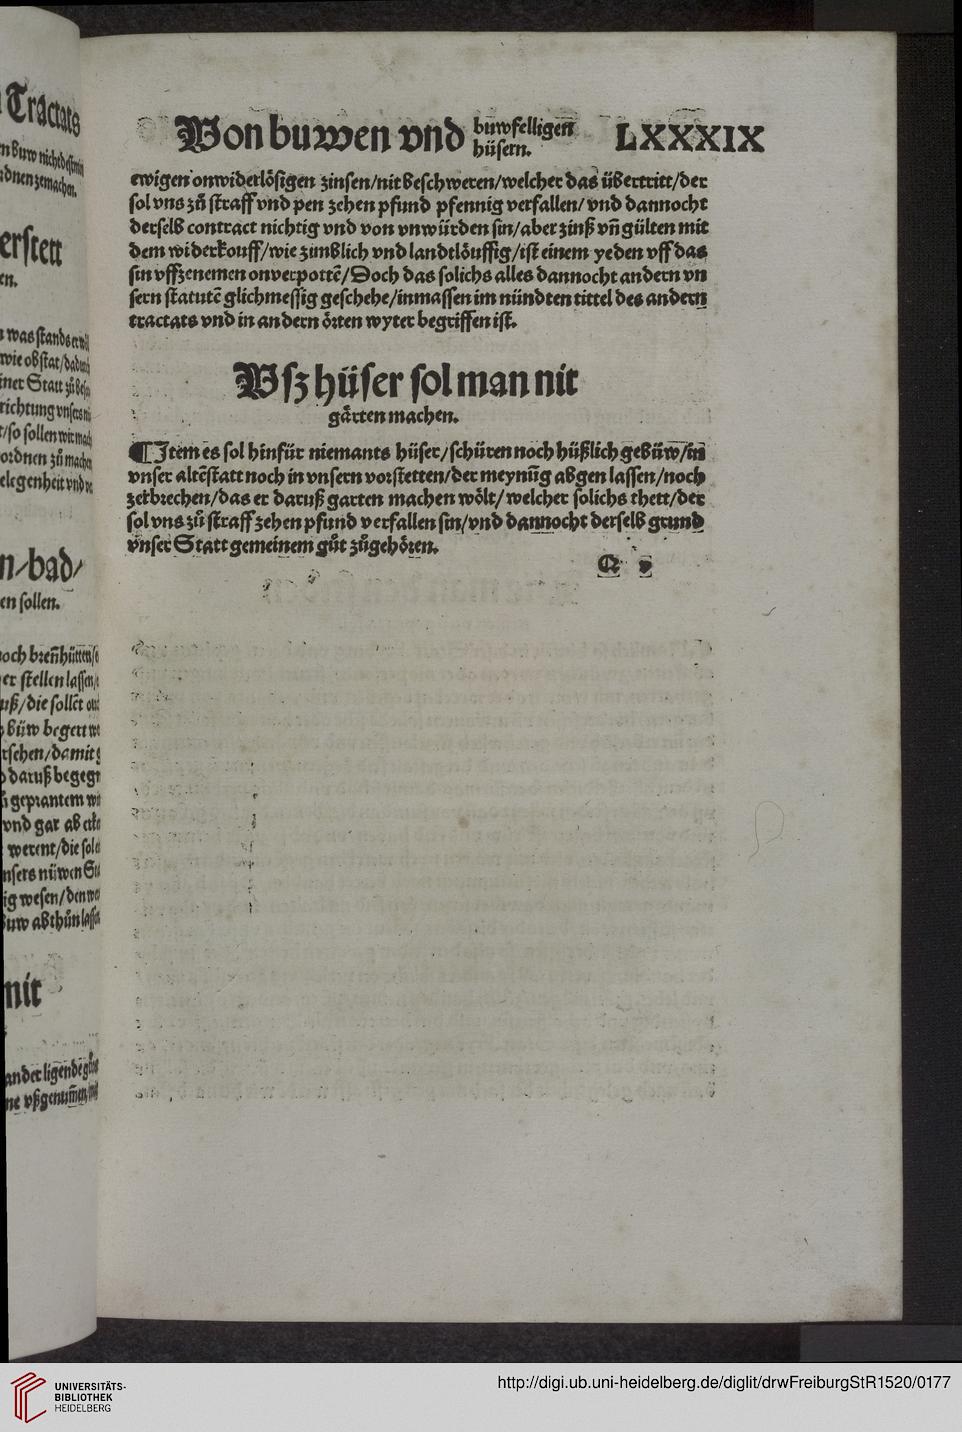 Von buwen vnd buwfelligen hüsern. LXXXIX
ewigen onwiderlösigen zinsen/nit beschweren/welcher das übertritt/der
sol vns zů straff vnd pen zehen pfund pfennig verfallen/ vnd dannocht
derselb contract nichtig vnd von vnwürden sin/aber zinß vn̄ gülten mit
dem widerkouff/wie zimblich vnd landtlöuffig/ist einem yeden vff das
sin vffzenemen onverpottē/Doch das solichs alles dannocht andern vn
sern statutē glichmessig geschehe/inmassen im nündten tittel des andern
tractats vnd in andern örten wyter begriffen ist.
Vsz hüser sol man nit
gärten machen.
¶ Item es sol hinfür niemants hüser/schüren noch hüßlich gebüw/in
vnser altēstatt noch in vnsern vorstetten/der meynūg abgen lassen/noch
zerbrechen/das er daruß garten machen wölt/welcher solichs thett/der
sol vns zů straff zehen pfund verfallen sin/vnd dannocht derselb grund
vnser Statt gemeinem gůt zůgehören.
Q v
Tractats
erstett
en.
n/bad/
en sollen.
nit
UNIVERSITÄTS-
BIBLIOTHEK
HEIDELBERG
http://digi.ub.uni-heidelberg.de/diglit/drwFreiburgStR1520/0177